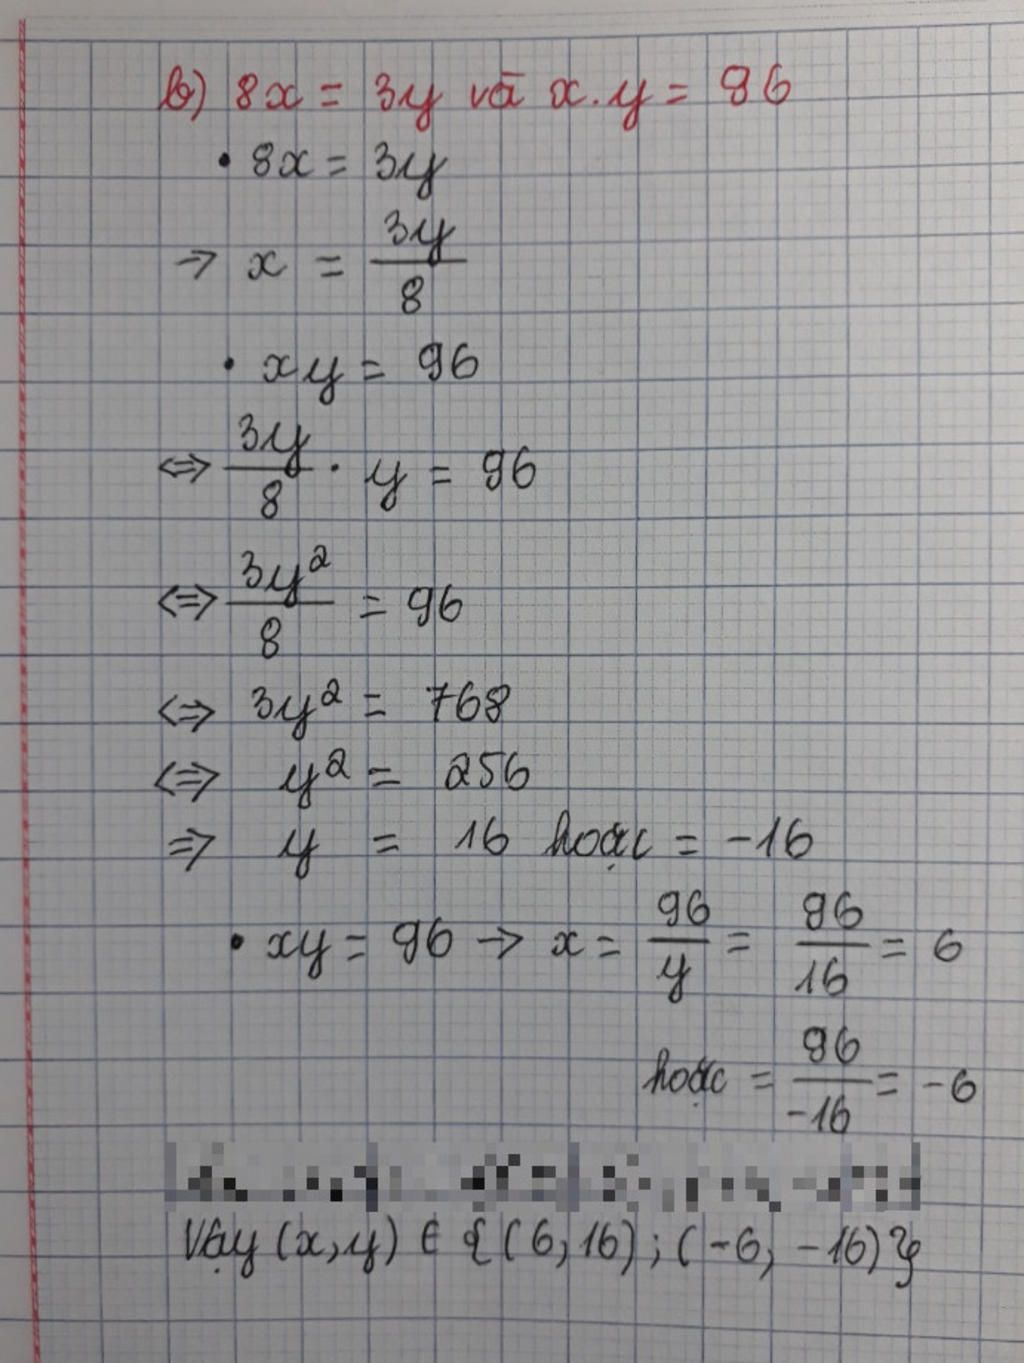 b) 8x = 3y và x.y = 96
• 8x = 3y
→ x = 3y/8
• xy = 96
⇔ 3y/8 . y = 96
⇔ 3y²/8 = 96
⇔ 3y² = 768
⇔ y² = 256
⇒ y = 16 hoặc = -16
• xy = 96 → x = 96/y = 96/16 = 6
hoặc = 96/-16 = -6
Vậy (x,y) ∈ {(6,16); (-6, -16)}